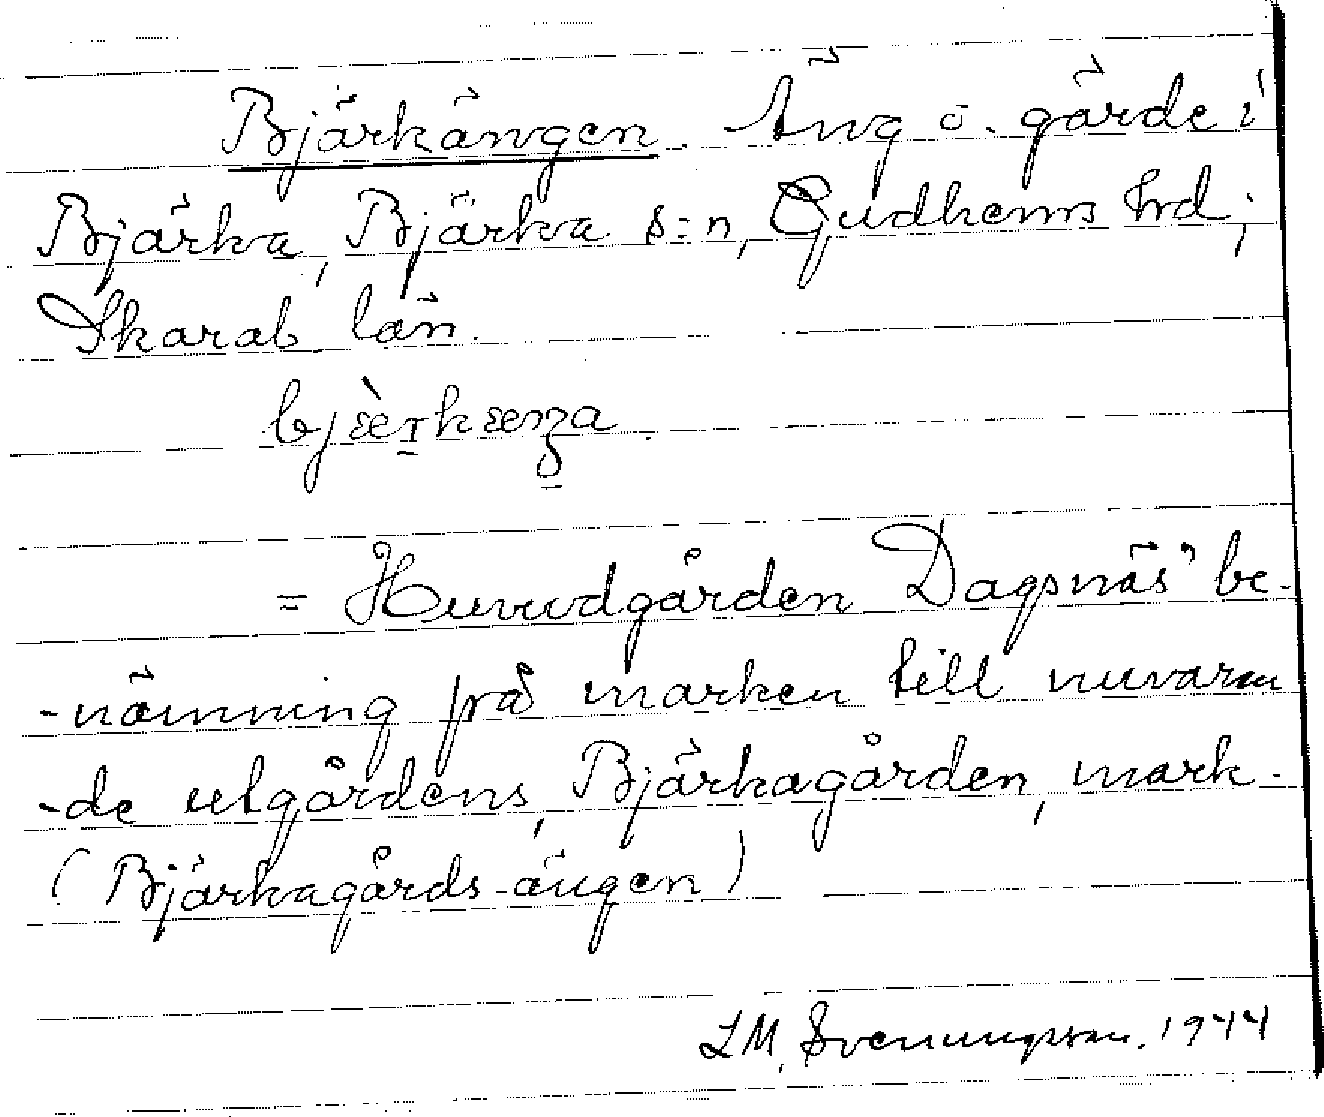 Bjärkängen. Äng o. gärde i
Bjärka, Bjärka s:n, Gudhems hrd;
Skarab. län.
bjæ̀rkæŋa
= Huvudgården Dagsnäs" be-
-nämning på marken till nuvaran
-de utgårdens, Bjärkagården, mark.
(Bjärkagårds-ängen)
LM, Svenungsson. 1944